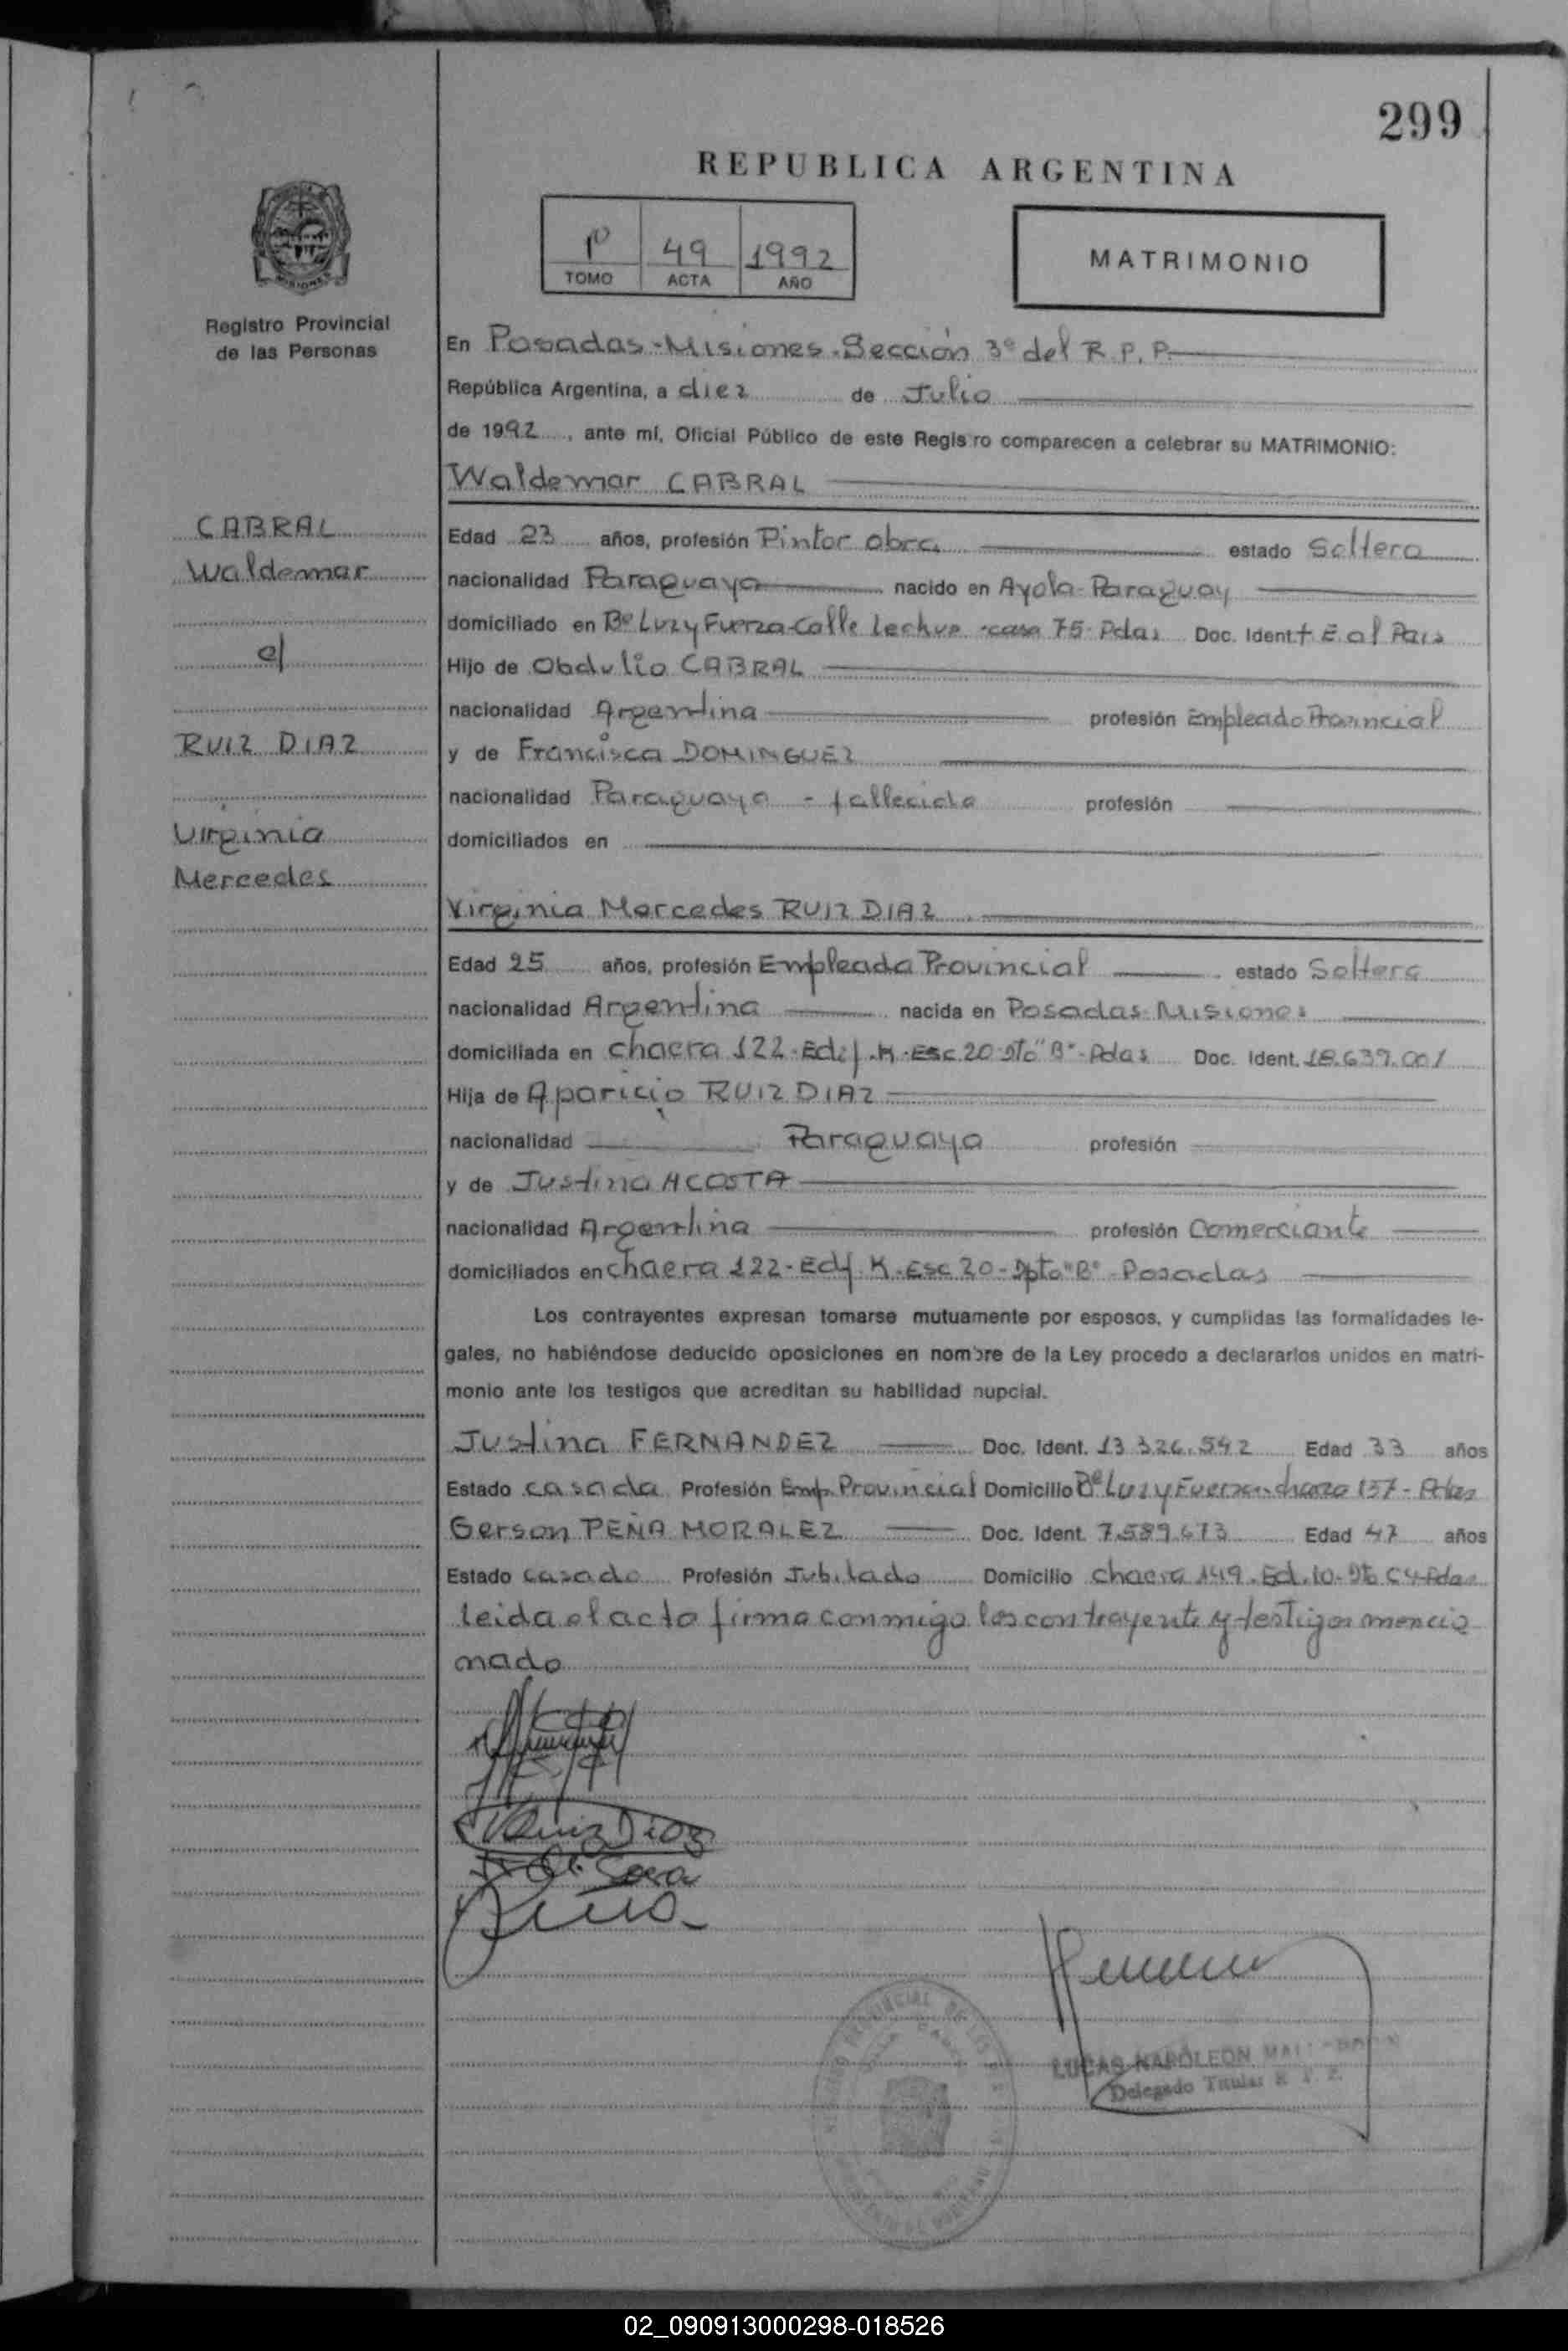 299
REPUBLICA ARGENTINA
1º 49 1992
TOMO ACTA AÑO
MATRIMONIO
MISIONES
Registro Provincial
de las Personas
En Posadas-Misiones-Sección 3º del R.P.P.
República Argentina, a diez de Julio
de 1992, ante mí, Oficial Público de este Registro comparecen a celebrar su MATRIMONIO:
Waldemar CABRAL
CABRAL
Waldemar
c/
RUIZ DIAZ
Virginia
Mercedes
Edad 23 años, profesión Pintor obra estado Soltero
nacionalidad Paraguaya nacido en Ayola-Paraguay
domiciliado en Bº Luz y Fuerza-Calle casa 75-Pdas Doc. Ident.
Hijo de Obdulio CABRAL
nacionalidad Argentina profesión Empleado Provincial
y de Francisca DOMINGUEZ
nacionalidad Paraguaya - fallecida profesión
domiciliados en
Virginia Mercedes RUIZ DIAZ
Edad 25 años, profesión Empleada Provincial estado Soltera
nacionalidad Argentina nacida en Posadas-Misiones
domiciliada en chacra 122-Edif.K-Esc.20-Dto"B"-Pdas Doc. Ident. 18.639.001
Hija de Aparicio RUIZ DIAZ
nacionalidad Paraguaya profesión
y de Justina ACOSTA
nacionalidad Argentina profesión Comerciante
domiciliados en chacra 122-Edf.K-Esc 20-Dpto"B"-Posadas
Los contrayentes expresan tomarse mutuamente por esposos, y cumplidas las formalidades le-
gales, no habiéndose deducido oposiciones en nombre de la Ley procedo a declararlos unidos en matri-
monio ante los testigos que acreditan su habilidad nupcial.
Justina FERNANDEZ Doc. Ident. 13.326.542 Edad 33 años
Estado casada Profesión Emp. Provincial Domicilio Bº Luz y Fuerza-chacra 157-Pdas
Gerson PEÑA MORALEZ Doc. Ident. 7.589.673 Edad 47 años
Estado casado Profesión Jubilado Domicilio chacra 149-Ed.10-Dto C4-Pdas
Leida el acta firma conmigo los contrayente y testigos mencio
nado
Ruiz Diaz
LUCAS NAPOLEON
Delegado Titular R. P. P.
02_090913000298-018526